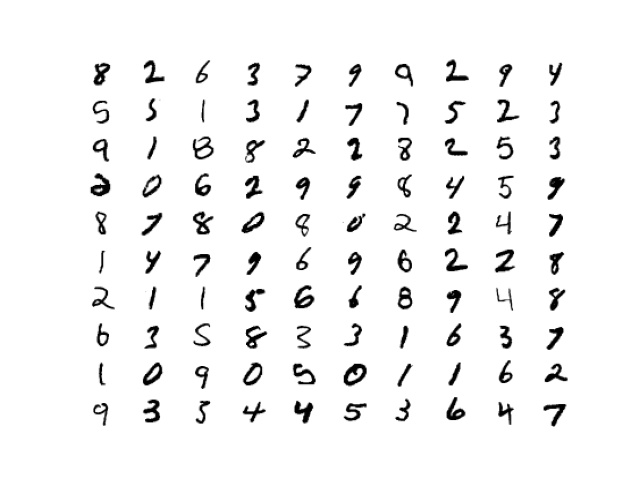 8 2 6 3 7 9 9 2 9 4
5 5 1 3 1 7 7 5 2 3
9 1 8 8 2 2 8 2 5 3
2 0 6 2 9 9 8 4 5 9
8 7 8 0 8 0 2 2 4 7
1 4 7 9 6 9 6 2 2 8
2 1 1 5 6 6 8 9 4 8
6 3 5 8 3 3 1 6 3 7
1 0 9 0 5 0 1 1 6 2
9 3 3 4 4 5 3 6 4 7